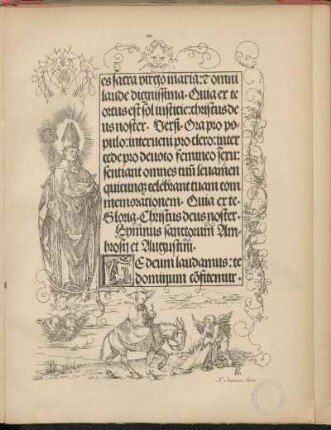 es sacra virgo maria: et omni
laude dignissima. Quia ex te
ortus est sol iusticie: christus de
us noster. Versi. Ora pro po
pulo: interveni pro clero: inter
cede pro devoto femineo sexu:
sentiant omnes tuum levamen
quicunque celebrant tuam com
memorationem. Quia ex te.
Gloria. Christus deus noster.
Hymnus sanctorum Am
brosii et Augustini.
TE deum laudamus: te
dominum confitemur.